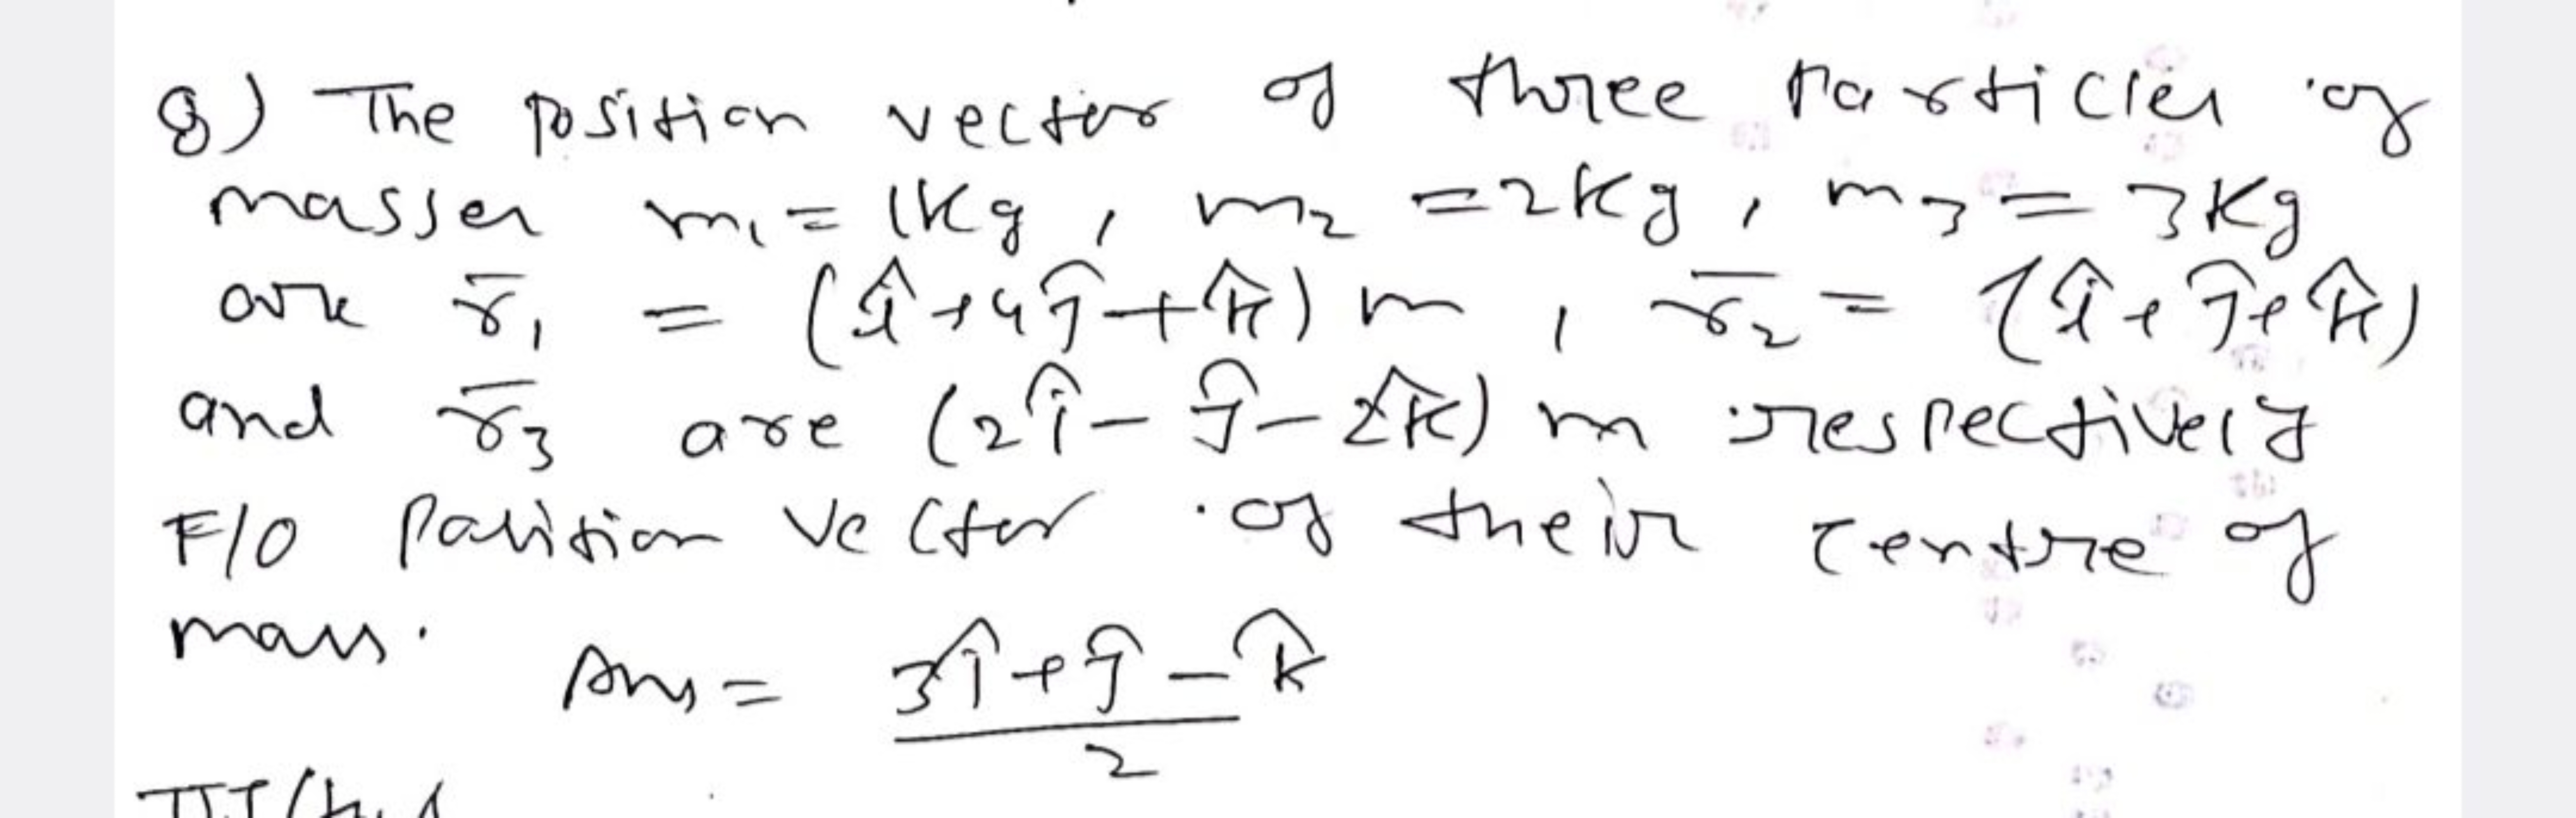 Q) The position vector of three Particles of
masses m₁ = 1Kg , m₂ = 2Kg , m₃ = 3Kg
are r̄₁ = (î + 4ĵ + k̂) m , r̄₂ = (î + ĵ + k̂)
and r̄₃ are (2î - ĵ - 2k̂) m respectively
F/O Position Vector of their centre of
mass. Ans = (3î + ĵ - k̂)/2